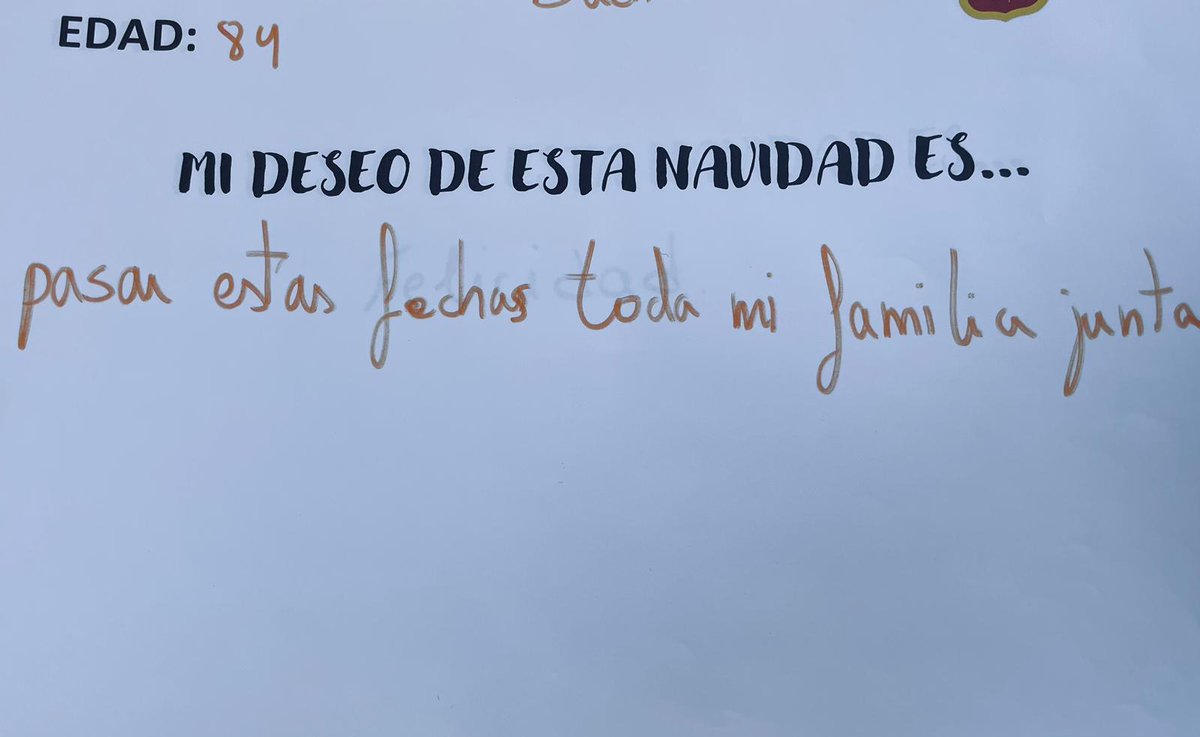 EDAD: 84
MI DESEO DE ESTA NAVIDAD ES...
pasar estas fechas toda mi familia junta